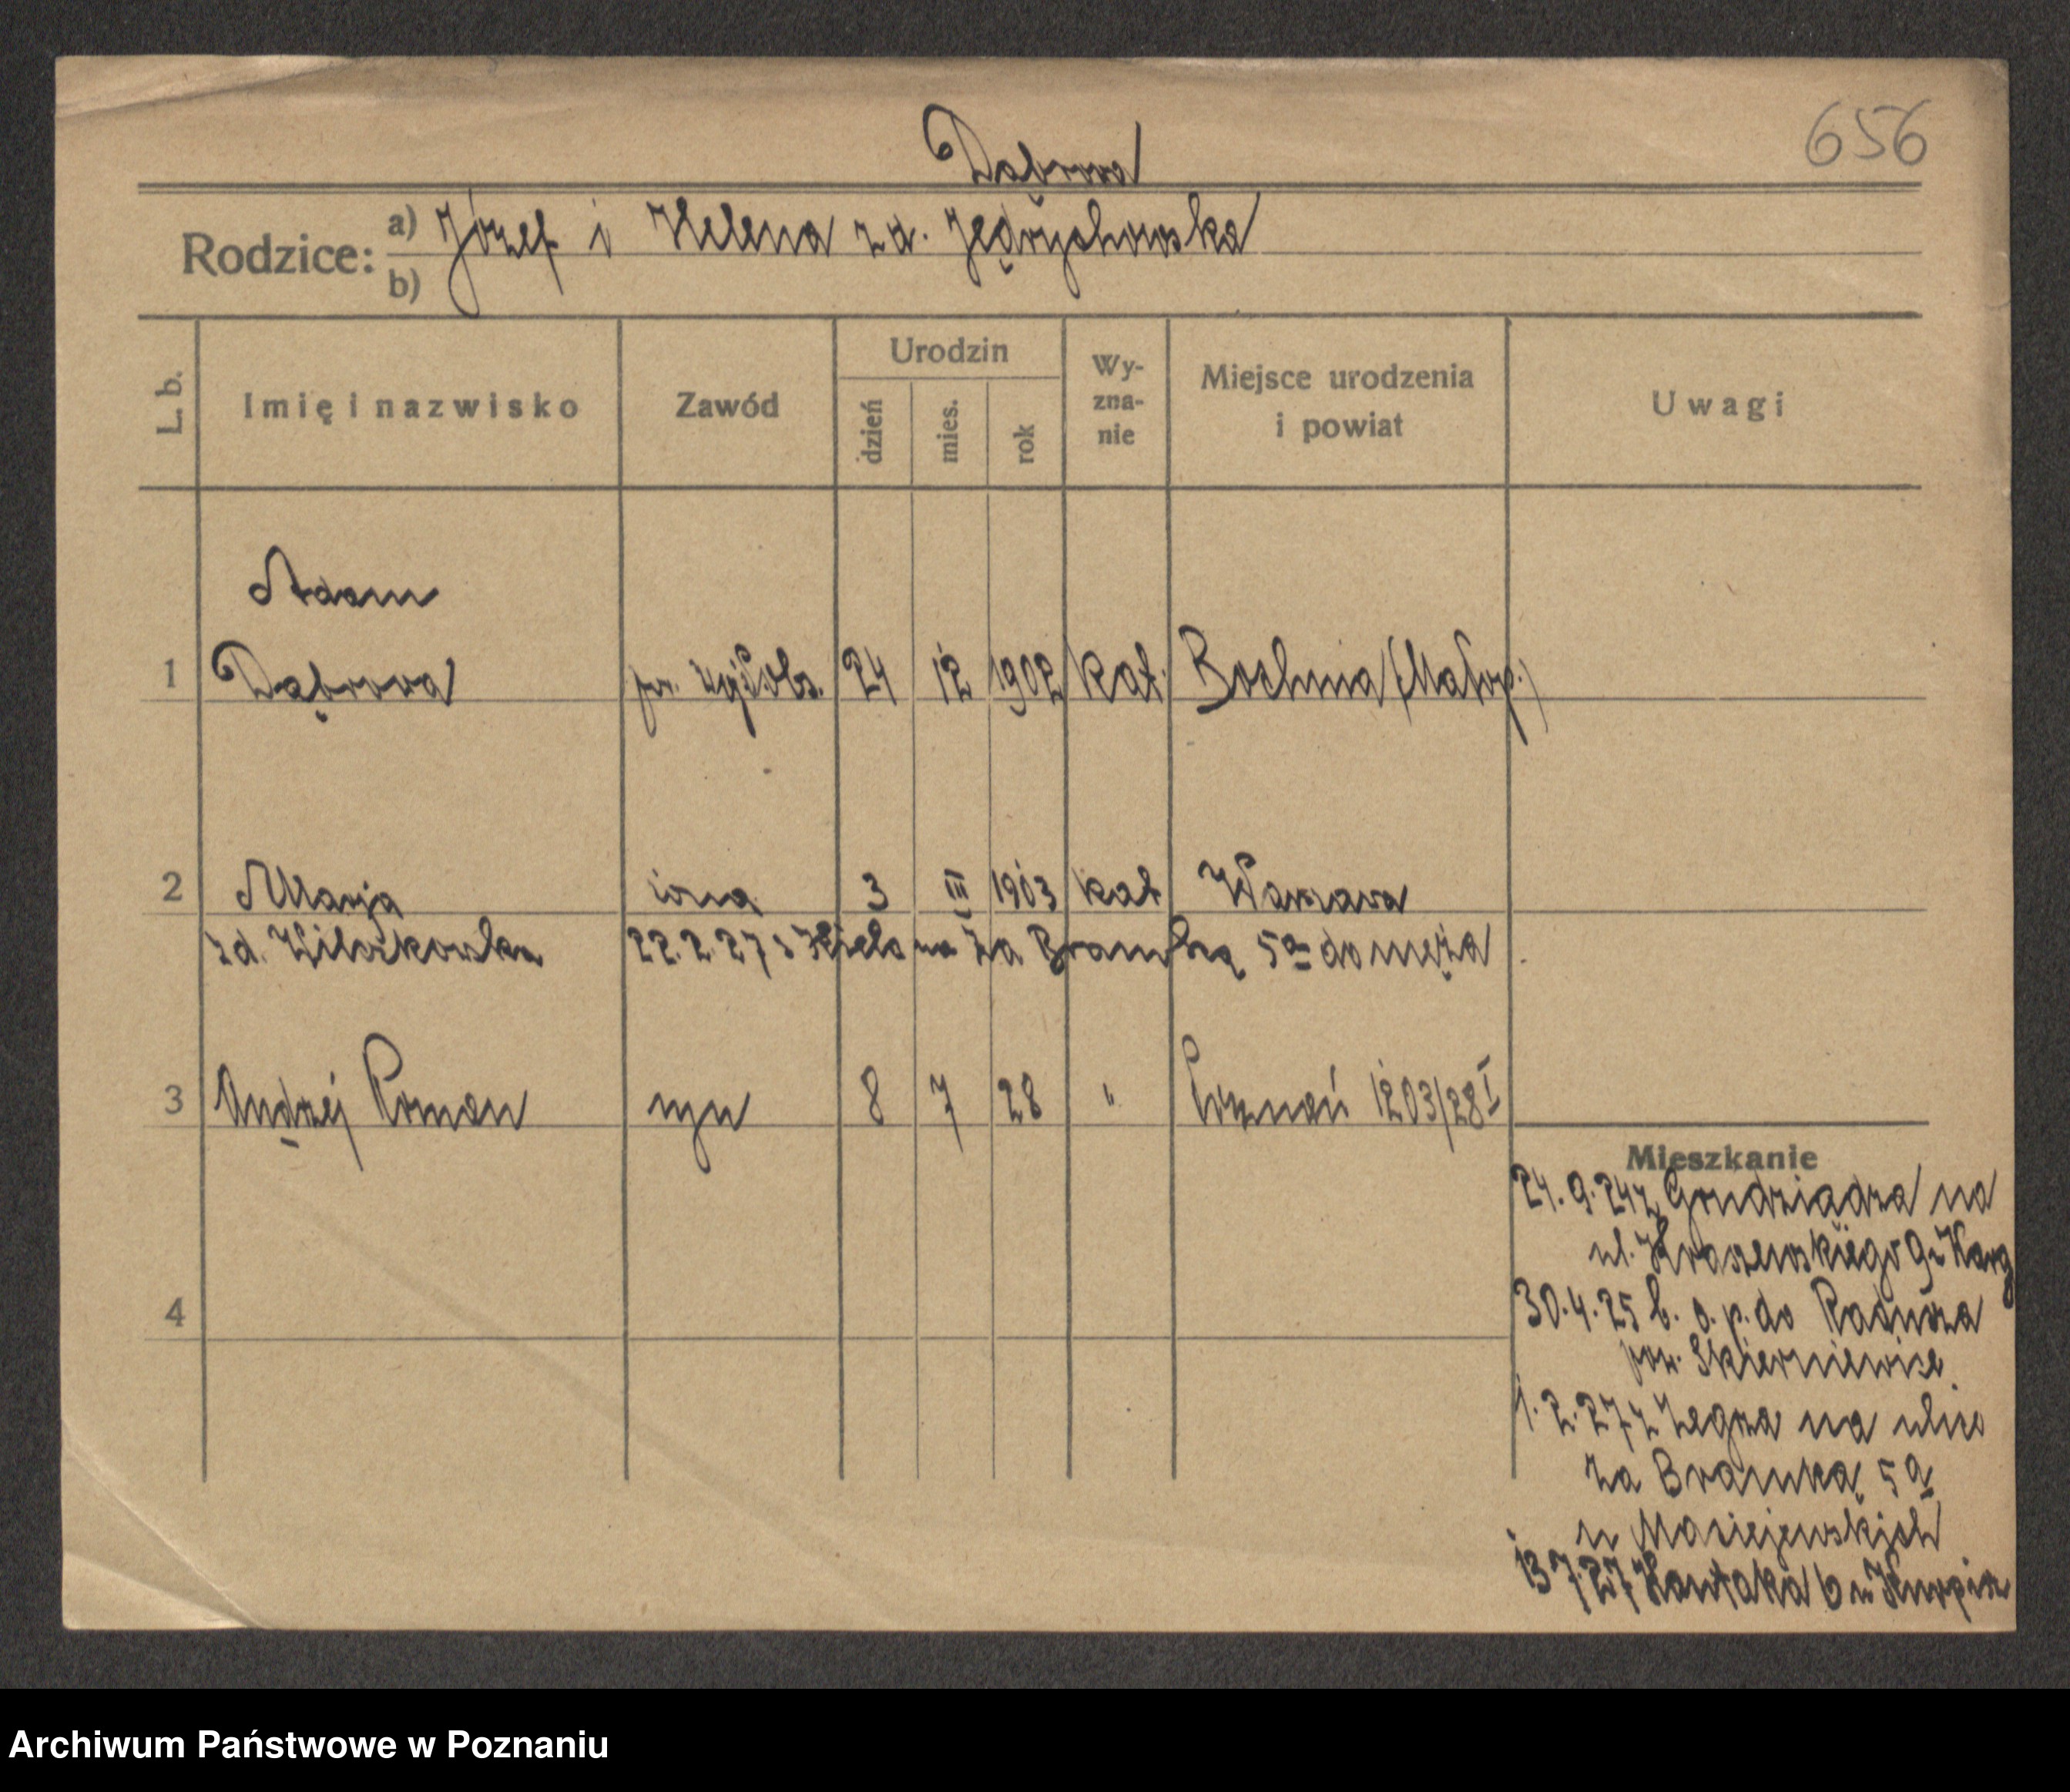 656
Dąbrowa
Rodzice:
a) Józef i Helena zd. Jędrychowska
b)
L. b.
Imię i nazwisko
Zawód
Urodzin
dzień
mies.
rok
Wy-
zna-
nie
Miejsce urodzenia
i powiat
Uwagi
Adam
1 Dąbrowa 24 12 1902 kat. Bochnia (Małop.)
2 Marja żona 3 III 1903 kat Warszawa
zd. 22.2.27 z na Za Bramką 5a do męża
3 Andrzej Roman syn 8 7 28 " Poznań 1203/28 I
Mieszkanie
24.9.24 z Grudziądza na
ul. Kraszewskiego 9 u
4
30.4.25 b. o.p. do
pow. Skierniewice
1.2.27 z Zegrza na ulicę
Za Bramką 5a
u Maciejewskich
13.7.27 Kantaka 6 u
Archiwum Państwowe w Poznaniu